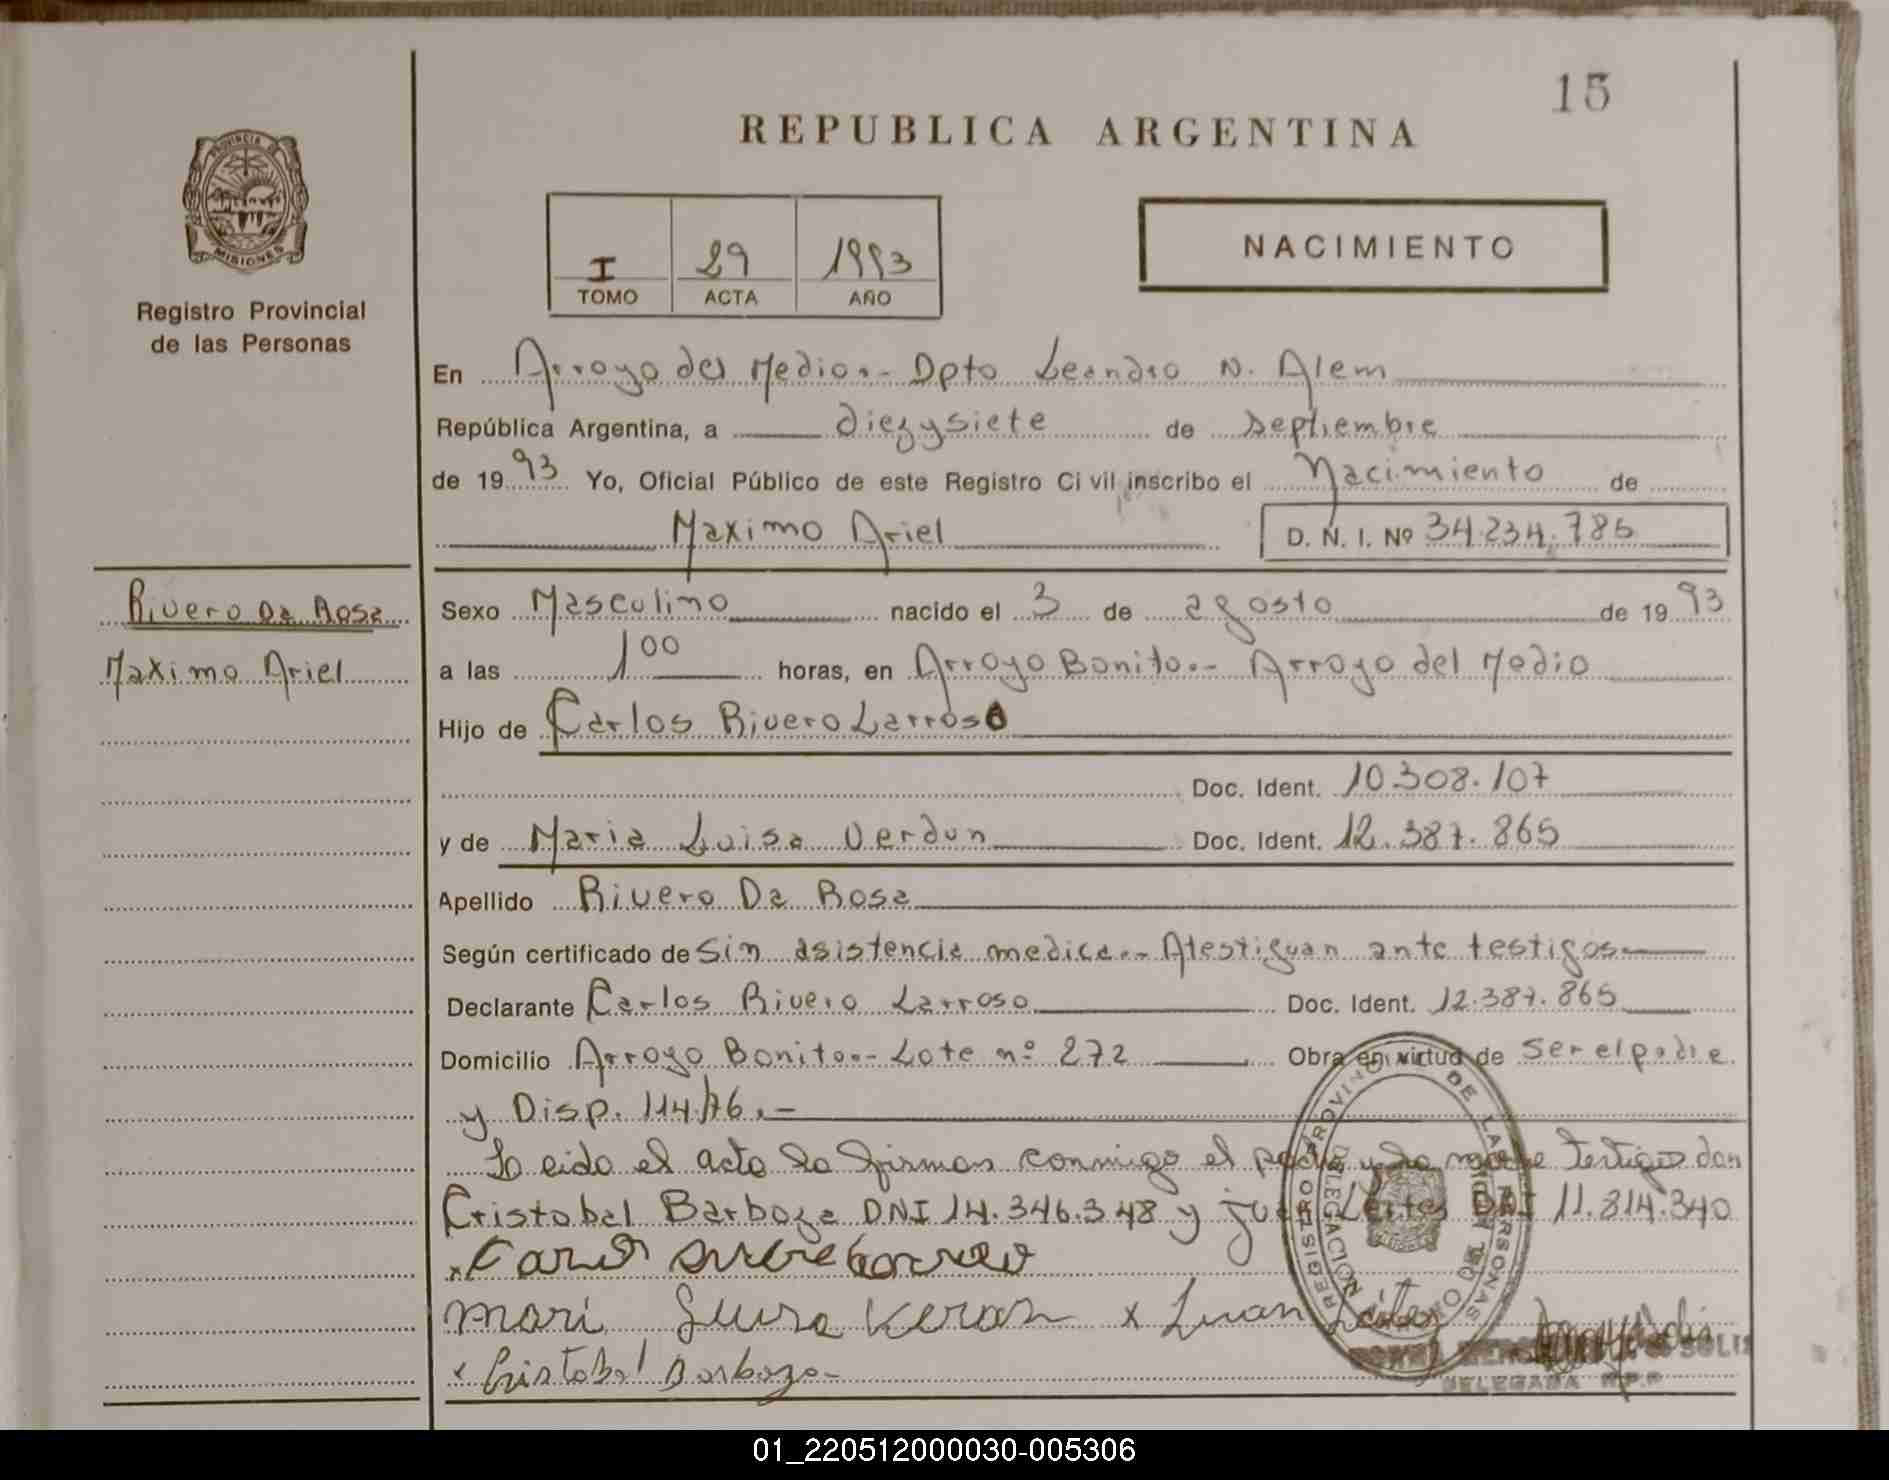 15
REPUBLICA ARGENTINA
PROVINCIA DE
MISIONES
Registro Provincial
de las Personas
I 29 1993
TOMO ACTA AÑO
NACIMIENTO
En Arroyo del Medio.- Dpto Leandro N. Alem
República Argentina, a diezysiete de septiembre
de 1993 Yo, Oficial Público de este Registro Civil inscribo el Nacimiento de
Maximo Ariel D. N. I. Nº 34.234.785
Rivero Da Rosa
Maximo Ariel
Sexo Masculino nacido el 3 de agosto de 1993
a las 1 00 horas, en Arroyo Bonito.- Arroyo del Medio
Hijo de Carlos Rivero Larroso
Doc. Ident. 10.308.107
y de Maria Luisa Verdun Doc. Ident. 12.387.865
Apellido Rivero Da Rosa
Según certificado de Sin asistencia medica.- Atestiguan ante testigos
Declarante Carlos Rivero Larroso Doc. Ident. 12.387.865
Domicilio Arroyo Bonito.- Lote nº 272 Obra en virtud de ser el padre
y Disp. 114/76.-
Leido el acta la firman conmigo el padre y la madre testigos don
Cristobal Barboza DNI 14.346.348 y Juan Leites DNI 11.814.340
Mari Luisa x Juan Leites
x Cristobal Barboza-
REGISTRO PROVINCIAL DE LAS PERSONAS
DELEGACION
DELEGADA R.P.P
01_220512000030-005306